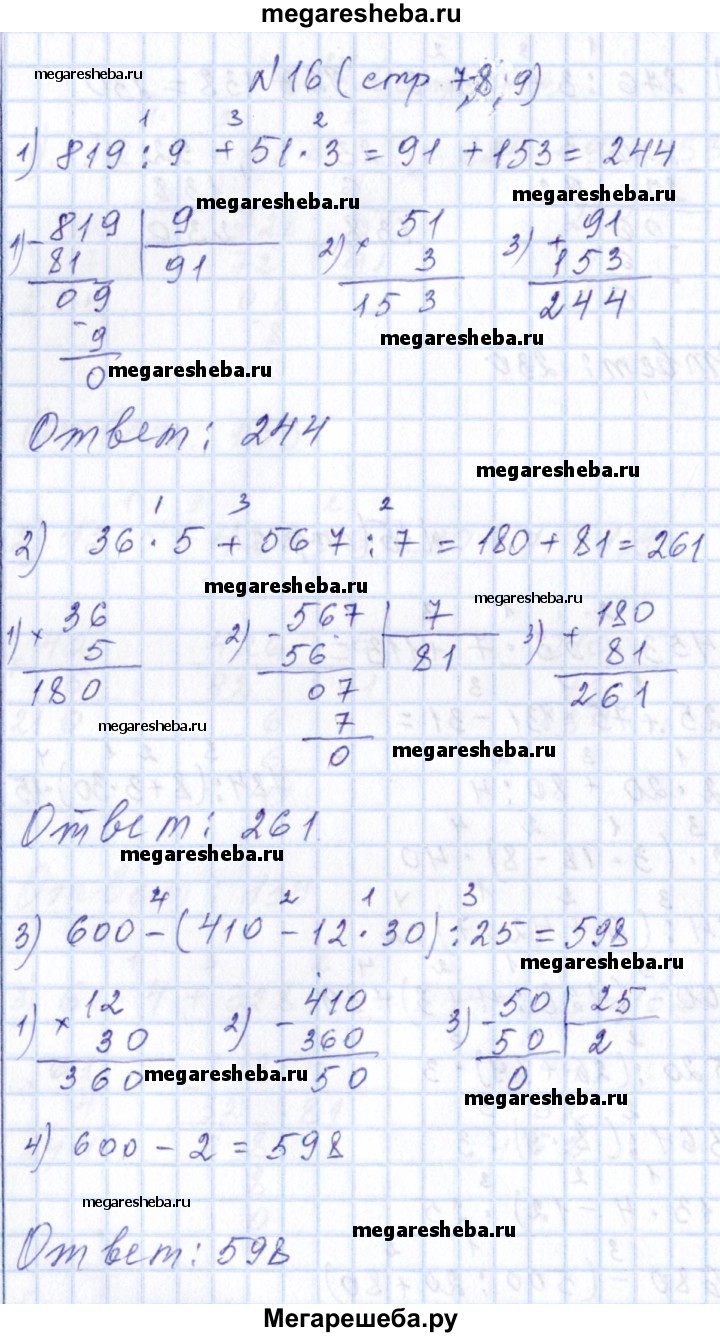 megaresheba.ru
megaresheba.ru
№16 (стр 7,8,9)
1 3 2
1) 819 : 9 + 51 · 3 = 91 + 153 = 244
megaresheba.ru megaresheba.ru
1) - 819 | 9 2) × 51 3) + 91
81 91 3 153
09 153 244
- 9 megaresheba.ru
0 megaresheba.ru
Ответ: 244
megaresheba.ru
1 3 2
2) 36 · 5 + 567 : 7 = 180 + 81 = 261
megaresheba.ru megaresheba.ru
1) × 36 2) - 567 | 7 3) + 180
5 56 81 81
180 07 261
megaresheba.ru 7
0 megaresheba.ru
Ответ: 261
megaresheba.ru
4 2 1 3
3) 600 - (410 - 12 · 30) : 25 = 598
megaresheba.ru
1) × 12 2) - 410 3) - 50 | 25
30 360 50 2
360 megaresheba.ru 50 0
megaresheba.ru
4) 600 - 2 = 598
megaresheba.ru
megaresheba.ru
Ответ: 598
Мегарешеба.ру